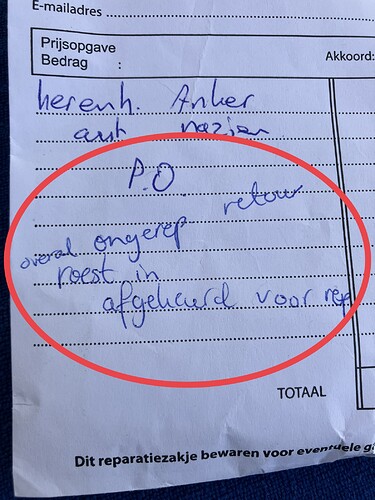 E-mailadres
Prijsopgave
Bedrag :
Akkoord:
herenh. Anker
aut nazien
P.O
retour
overal ongerep
roest in
afgekeurd voor rep
TOTAAL
Dit reparatiezakje bewaren voor eventuele